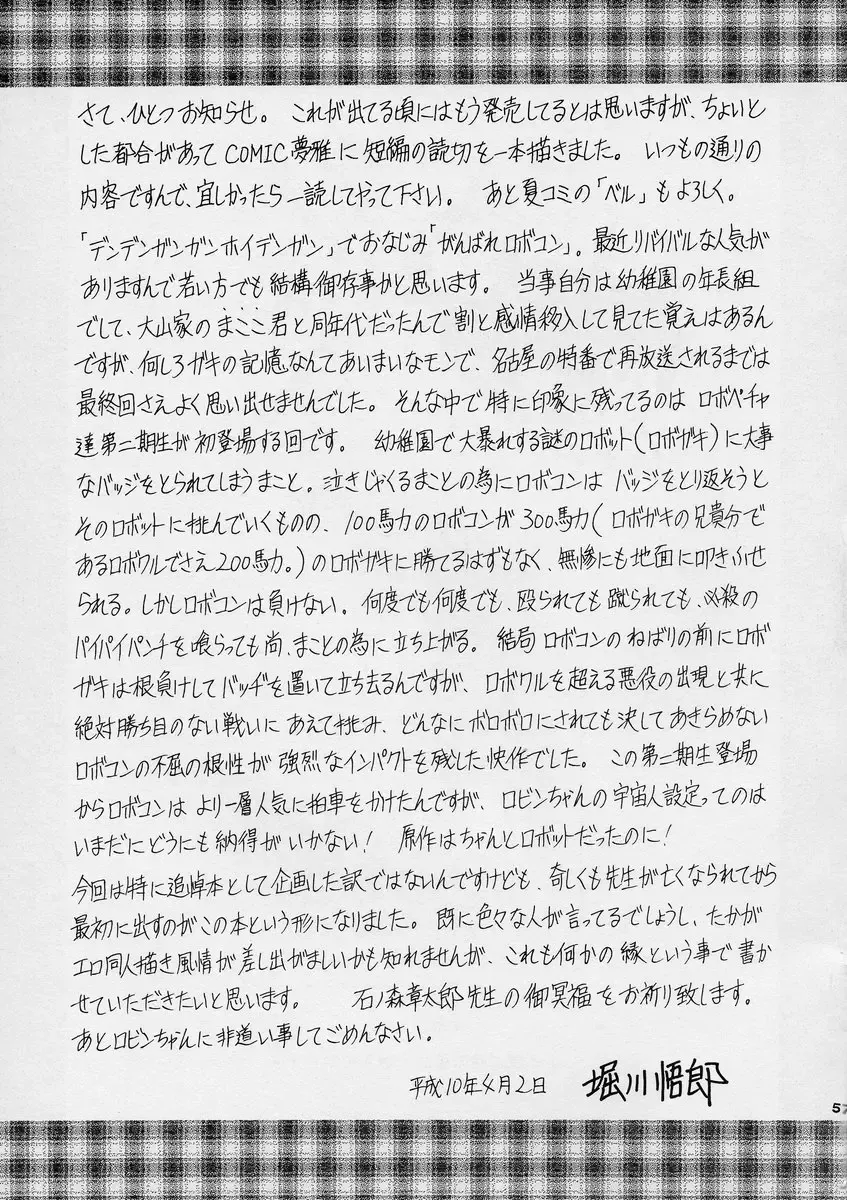 さて、ひとつお知らせ。 これが出てる頃にはもう発売してるとは思いますが、ちょいと
した都合があって COMIC夢雅に短編の読切を一本描きました。 いつもの通りの
内容ですんで、宜しかったら一読してやって下さい。 あと夏コミの「ベル」もよろしく。
「デンデンガンガンホイデンガン」でおなじみ「がんばれロボコン」。最近リバイバルな人気が
ありますんで若い方でも結構御存事かと思います。 当事自分は幼稚園の年長組
でして、大山家のまここ君と同年代だったんで割と感情移入して見てた覚えはあるん
ですが、何しろガキの記憶なんてあいまいなモンで、名古屋の特番で再放送されるまでは
最終回さえよく思い出せませんでした。そんな中で特に印象に残ってるのは ロボペチャ
達第二期生が初登場する回です。 幼稚園で大暴れする謎のロボット(ロボガキ)に大事
なバッジをとられてしまうまこと。泣きじゃくるまことの為にロボコンは バッジをとり返そうと
そのロボットに挑んでいくものの、100馬力のロボコンが300馬力(ロボガキの兄貴分で
あるロボワルでさえ200馬力。)のロボガキに勝てるはずもなく、無惨にも地面に叩きふせ
られる。しかしロボコンは負けない。何度でも何度でも、殴られても蹴られても、必殺の
パイパイパンチを喰らっても尚、まことの為に立ち上がる。結局ロボコンのねばりの前にロボ
ガキは根負けしてバッヂを置いて立ち去るんですが、ロボワルを超える悪役の出現と共に
絶対勝ち目のない戦いに あえて挑み、どんなにボロボロにされても決してあきらめない
ロボコンの不屈の根性が 強烈なインパクトを残した快作でした。 この第二期生登場
からロボコンは より一層人気に拍車をかけたんですが、ロビンちゃんの宇宙人設定ってのは
いまだにどうにも納得がいかない! 原作はちゃんとロボットだったのに!
今回は特に追悼本として企画した訳ではないんですけども、奇しくも先生が亡くなられてから
最初に出すのがこの本という形になりました。既に色々な人が言ってるでしょうし、たかが
エロ同人描き風情が差し出がましいかも知れませんが、これも何かの縁という事で書か
せていただきたいと思います。 石ノ森章太郎先生の御冥福をお祈り致します。
あとロビンちゃんに非道い事してごめんなさい。
平成10年4月2日 堀川悟郎
57